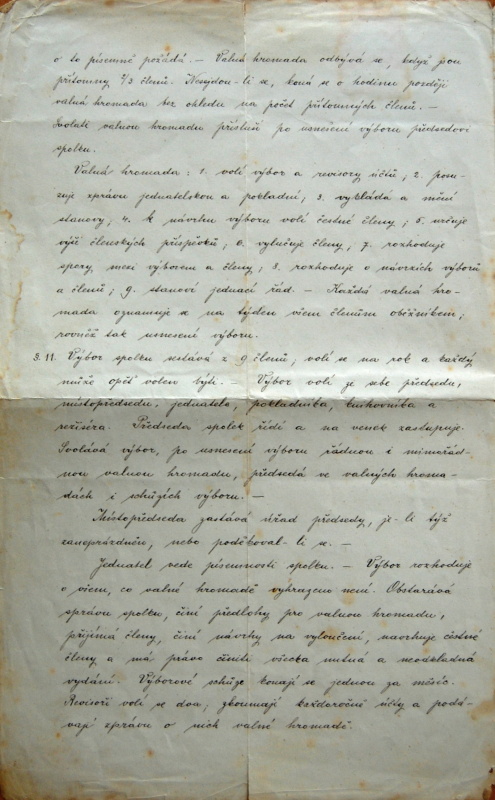 o to písemně požádá. — Valná hromada odbývá se, když jsou
přítomny 2/3 členů. Nesejdou-li se, koná se o hodinu později
valná hromada bez ohledu na počet přítomných členů. —
Svolati valnou hromadu přísluší po usnesení výboru předsedovi
spolku.
Valná hromada: 1. volí výbor a revisory účtů; 2. posu-
zuje zprávu jednatelskou a pokladní; 3. vykládá a mění
stanovy; 4. k návrhu výboru volí čestné členy; 5. určuje
výši členských příspěvků; 6. vylučuje členy; 7. rozhoduje
spory mezi výborem a členy; 8. rozhoduje o návrzích výborů
a členů; 9. stanoví jednací řád. — Každá valná hro-
mada oznamuje se na týden všem členům oběžníkem;
rovněž tak usnesení výboru.
§. 11. Výbor spolku sestává z 9 členů, volí se na rok a každý
může opět volen býti. — Výbor volí ze sebe předsedu,
místopředsedu, jednatele, pokladníka, knihovníka a
režiséra. Předseda spolek řídí a na venek zastupuje.
Svolává výbor, po usnesení výboru řádnou i mimořád-
nou valnou hromadu, předsedá ve valných hroma-
dách i schůzích výboru. —
Místopředseda zastává úřad předsedy, je-li týž
zaneprázdněn, nebo poděkoval-li se. —
Jednatel vede písemnosti spolku. — Výbor rozhoduje
o všem, co valné hromadě vyhrazeno není. Obstarává
správu spolku, činí předlohy pro valnou hromadu,
přijímá členy, činí návrhy na vyloučení, navrhuje čestné
členy a má právo činiti všecka nutná a neodkladná
vydání. Výborové schůze konají se jednou za měsíc.
Revisoři volí se dva; zkoumají každoročně účty a podá-
vají zprávu o nich valné hromadě.